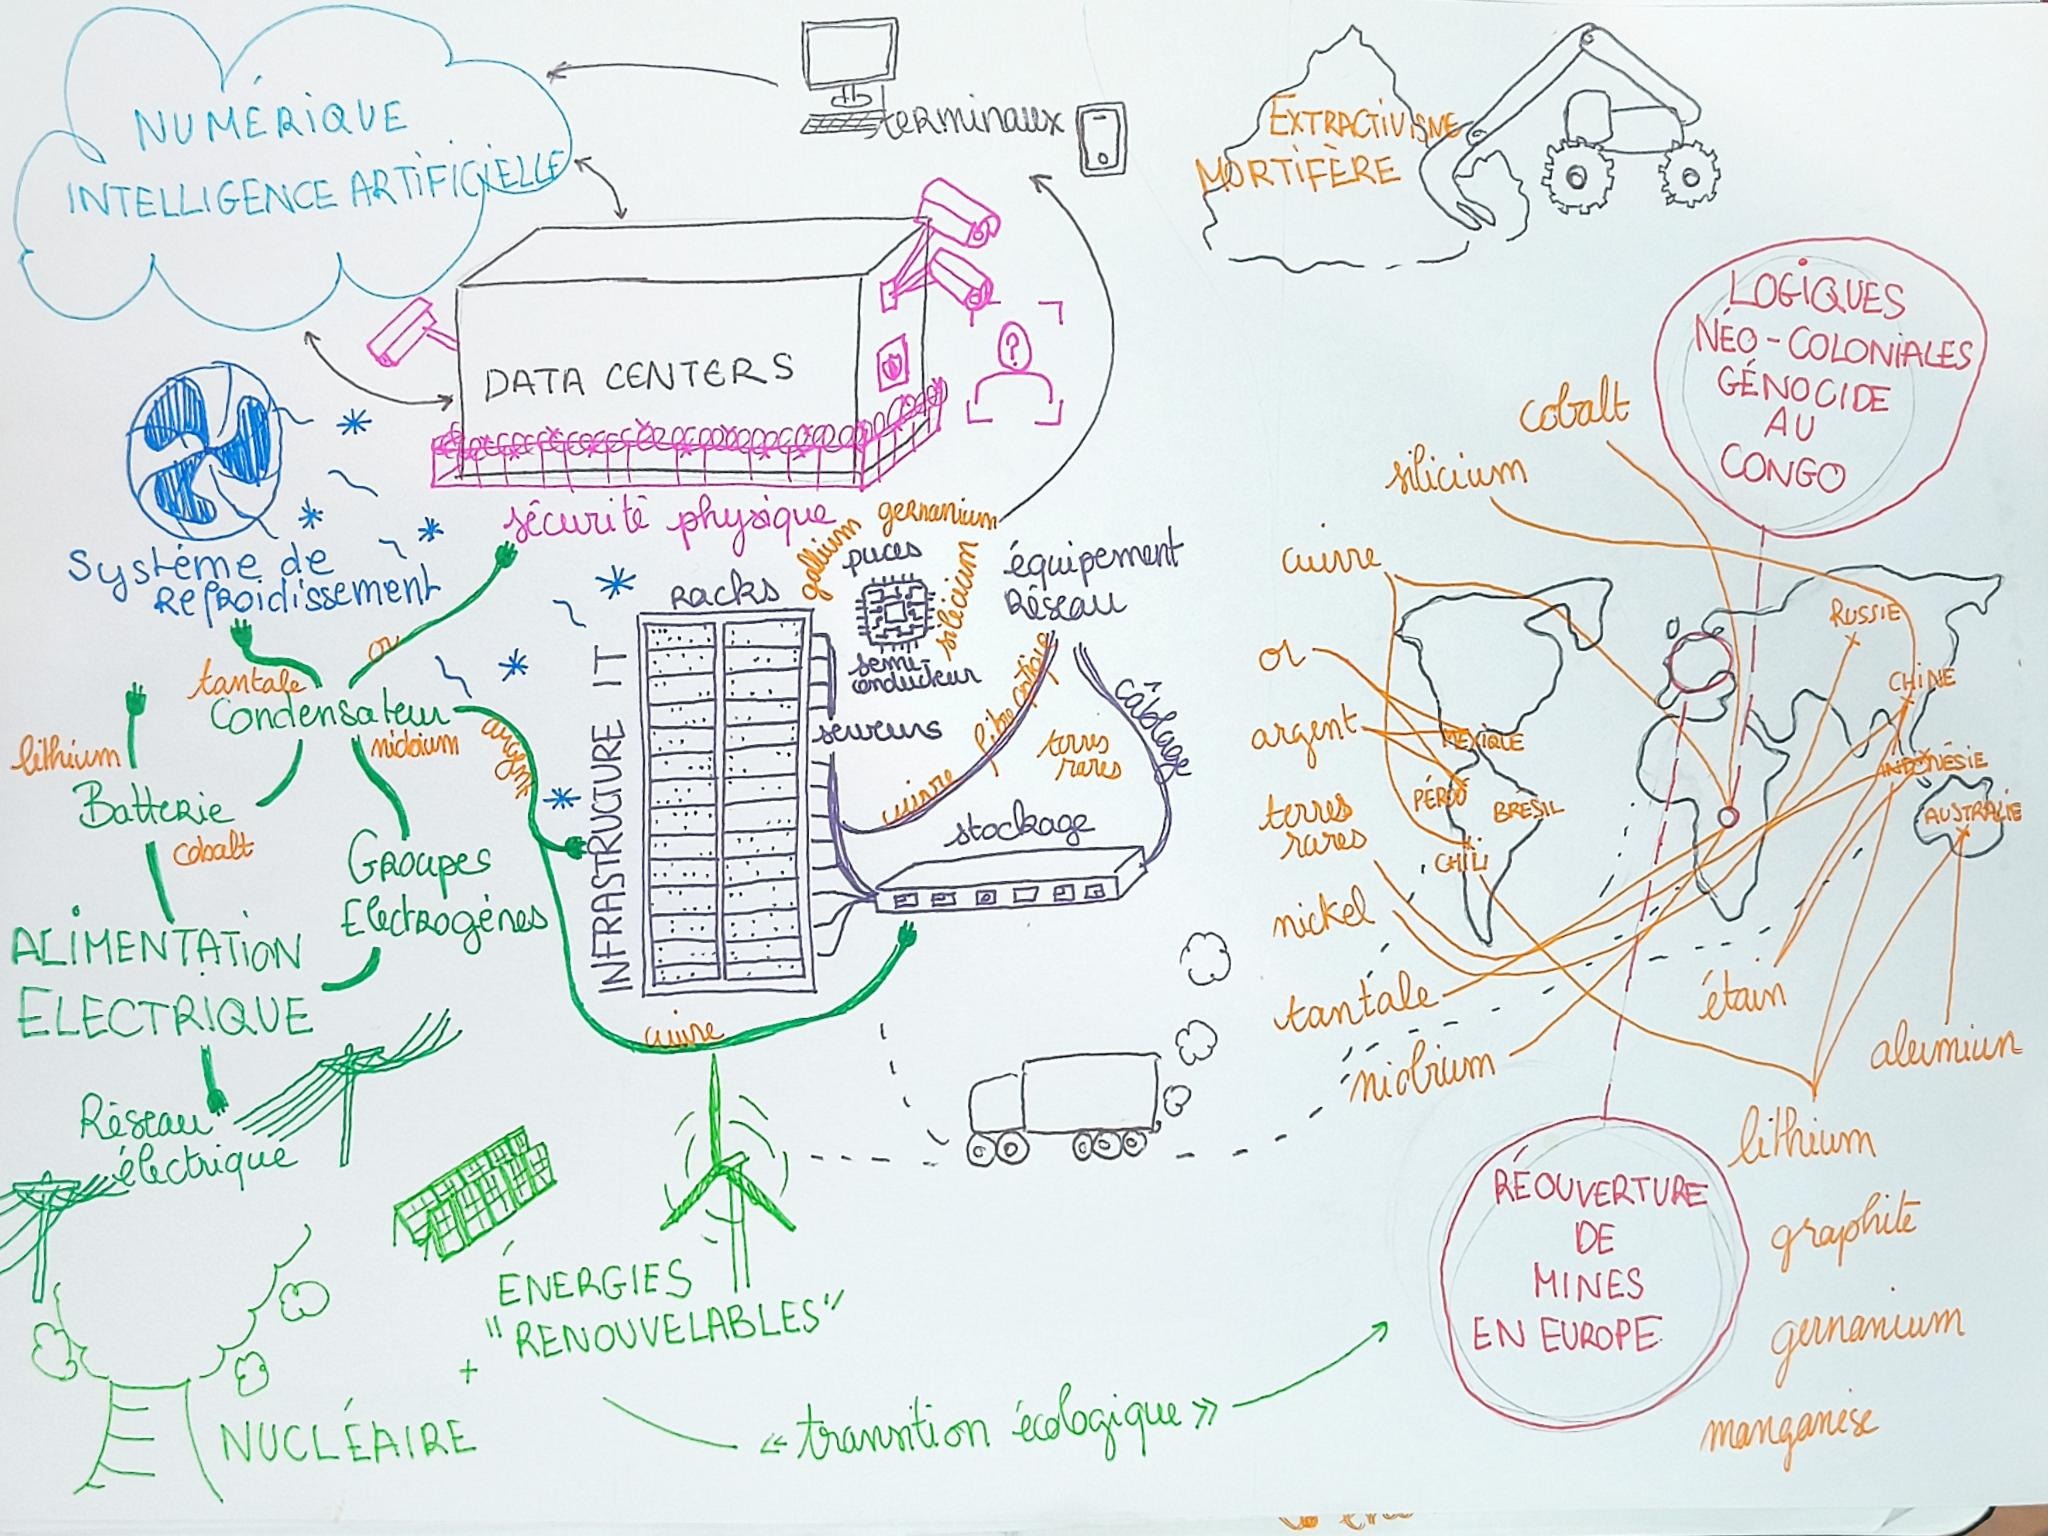 NUMÉRIQUE
INTELLIGENCE ARTIFICIELLE
terminaux
EXTRACTIVISME
MORTIFÈRE
LOGIQUES
NÉO-COLONIALES
GÉNOCIDE
AU
CONGO
DATA CENTERS
?
sécurité physique
Système de
Refroidissement
tantale
or
Condensateur
niobium
argent
lithium
Batterie
cobalt
Groupes
Electrogénes
ALIMENTATION
ELECTRIQUE
Réseau
électrique
INFRASTRUCTURE IT
Racks
gallium
germanium
silicium
puces
semi-
conducteur
serveurs
équipement
Réseau
cuivre
fibre optique
terres
rares
câblage
stockage
cuivre
cobalt
silicium
cuivre
or
argent
terres
rares
nickel
tantale
niobium
étain
alumiun
lithium
graphite
germanium
manganèse
RUSSIE
CHINE
INDONÉSIE
AUSTRALIE
MEXIQUE
PÉROU
BRESIL
CHILI
RÉOUVERTURE
DE
MINES
EN EUROPE
ÉNERGIES
"RENOUVELABLES"
+
NUCLÉAIRE
« transition écologique »